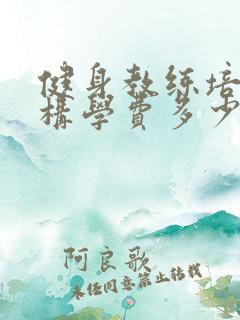 健身教练培
構學費多少
阿良歌
未经同意禁止转载